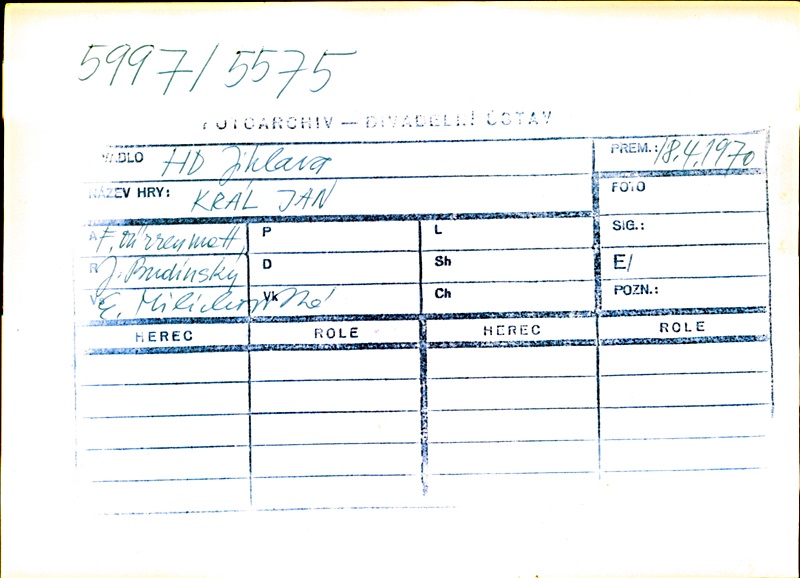 5997/5575
FOTOARCHIV — DIVADELNÍ ÚSTAV
DIVADLO HD Jihlava
PREM.: 18.4.1970
NÁZEV HRY: KRÁL JAN
FOTO
A F. Dürrenmatt
P
L
SIG.:
R J. Budínský
D
Sh
E/
V E.
Vk
Ch
POZN.:
HEREC ROLE HEREC ROLE